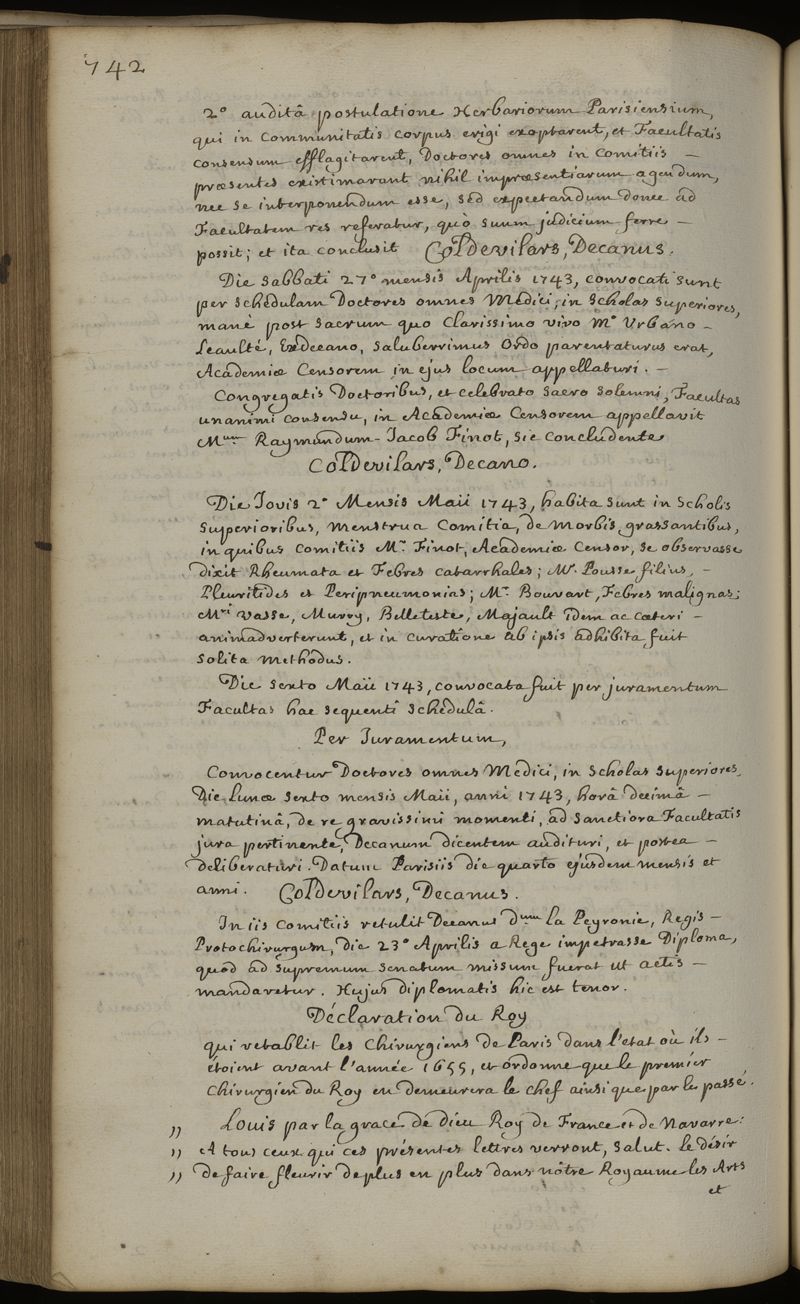 742
2° auditâ postulatione Herbariorum Parisiensium,
qui in communitatis corpus erigi exoptarent, et Facultatis
consensum efflagitarent, Doctores omnes in Comitiis –
præsentes existimarunt nihil impræsentiarum agendum,
nec se interponendum esse, sed expectandum donec ad
Facultatem res referatur, quò suum judicium ferre –
possit; et ita conclusit Col Devilars, Decanus.
Die Sabbati 27° mensis Aprilis 1743, convocati sunt
per schedulam Doctores omnes Medici, in Scholas Superiores,
manè post sacrum quo Clarissimo viro M° Urbano –
Leaulté, Exdecano, Saluberrimus Ordo parentaturus erat,
Academiæ Censorem in ejus locum appellaturi. –
Congregatis Doctoribus, et celebrato sacro solemni, Facultas
unanimi consensu, in Academiæ Censorem appellavit
Mum Raymundum-Jacob Finot, sic concludente
Col Devilars, Decano.
Die Jovis 2° Mensis Maii 1743, habita sunt in Scholis
Superioribus, menstrua Comitia, de morbis grassantibus,
in quibus Comitiis Mr Finot, Academiæ Censor, se observasse
dixit Rheumata et Febres catarrhales; Mr. Pousse filius, –
Pleuritides et Peripneumonias; Mr. Bouvart, Febres malignas;
Mri Vasse, Murry, Belleteste, Majault idem ac cæteri –
animadverterunt, et in curatione ab ipsis adhibita fuit
solita methodus.
Die sexto Maii 1743, convocata fuit per juramentum
Facultas hac sequenti schedulâ.
Per Juramentum,
Convocentur Doctores omnes Medici, in Scholas Superiores,
Die Lunæ sexto mensis Maii, anni 1743, horâ decimâ –
matutinâ, de re gravissimi momenti, ad sanctiora Facultatis
jura pertinente, Decanum dicentem audituri, et postea –
deliberaturi. Datum Parisiis die quarto ejusdem mensis et
anni. Col Devilars, Decanus.
In iis comitiis retulit Decanus Dnum la Peyronie, Regis –
Protochirurgum, die 23° Aprilis a Rege impetrasse Diploma,
quod ad supremum Senatum missum fuerat ut actis –
mandaretur. Hujus diplomatis hic est tenor.
Déclaration du Roy
qui retablit les Chirurgiens de Paris dans l'etat où ils –
étoient avant l'année 1655, et ordonne que le premier
Chirurgien du Roy en demeurera le chef ainsi que par le passé.
" Louis par la grace de dieu Roy de France et de Navarre:
" A tous ceux qui ces présentes lettres verront, Salut. Le désir
" de faire fleurir de plus en plus dans nôtre Royaume les Arts
et